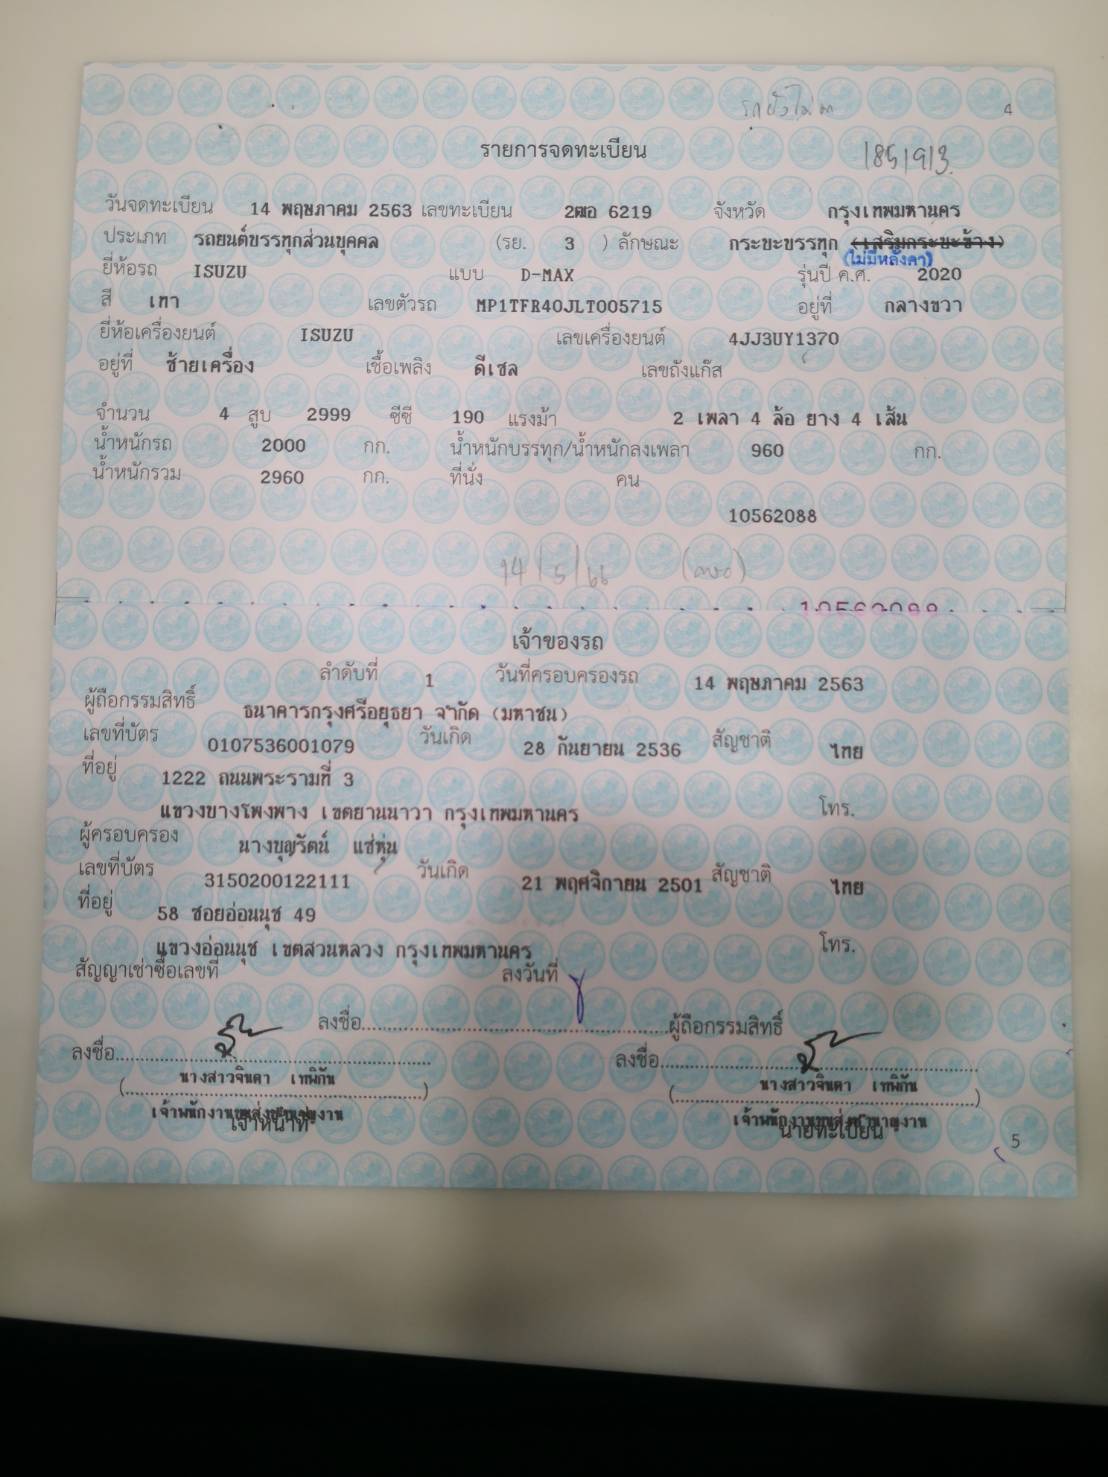 รถยังไม่
4
รายการจดทะเบียน
1851913
วันจดทะเบียน 14 พฤษภาคม 2563 เลขทะเบียน 2ฒอ 6219 จังหวัด กรุงเทพมหานคร
ประเภท รถยนต์บรรทุกส่วนบุคคล (รย. 3 ) ลักษณะ กระบะบรรทุก (เสริมกระบะข้าง)
(ไม่มีหลังคา)
ยี่ห้อรถ ISUZU แบบ D-MAX รุ่นปี ค.ศ. 2020
สี เทา เลขตัวรถ MP1TFR40JLT005715 อยู่ที่ กลางขวา
ยี่ห้อเครื่องยนต์ ISUZU เลขเครื่องยนต์ 4JJ3UY1370
อยู่ที่ ซ้ายเครื่อง เชื้อเพลิง ดีเซล เลขถังแก๊ส
จำนวน 4 สูบ 2999 ซีซี 190 แรงม้า 2 เพลา 4 ล้อ ยาง 4 เส้น
น้ำหนักรถ 2000 กก. น้ำหนักบรรทุก/น้ำหนักลงเพลา 960 กก.
น้ำหนักรวม 2960 กก. ที่นั่ง คน
10562088
14/5/66
10562088
เจ้าของรถ
ลำดับที่ 1 วันที่ครอบครองรถ 14 พฤษภาคม 2563
ผู้ถือกรรมสิทธิ์ ธนาคารกรุงศรีอยุธยา จำกัด (มหาชน)
เลขที่บัตร 0107536001079 วันเกิด 28 กันยายน 2536 สัญชาติ ไทย
ที่อยู่ 1222 ถนนพระรามที่ 3
แขวงบางโพงพาง เขตยานนาวา กรุงเทพมหานคร โทร.
ผู้ครอบครอง นางบุญรัตน์ แซ่หุ่น
เลขที่บัตร 3150200122111 วันเกิด 21 พฤศจิกายน 2501 สัญชาติ ไทย
ที่อยู่ 58 ซอยอ่อนนุช 49
แขวงอ่อนนุช เขตสวนหลวง กรุงเทพมหานคร โทร.
สัญญาเช่าซื้อเลขที่ ลงวันที่
ลงชื่อ..........ผู้ถือกรรมสิทธิ์
ลงชื่อ.......... ลงชื่อ..........
(นางสาวจินดา เทพิกัน) (นางสาวจินดา เทพิกัน)
เจ้าพนักงานขนส่งชำนาญงาน เจ้าพนักงานขนส่งชำนาญงาน
เจ้าหน้าที่ นายทะเบียน
5